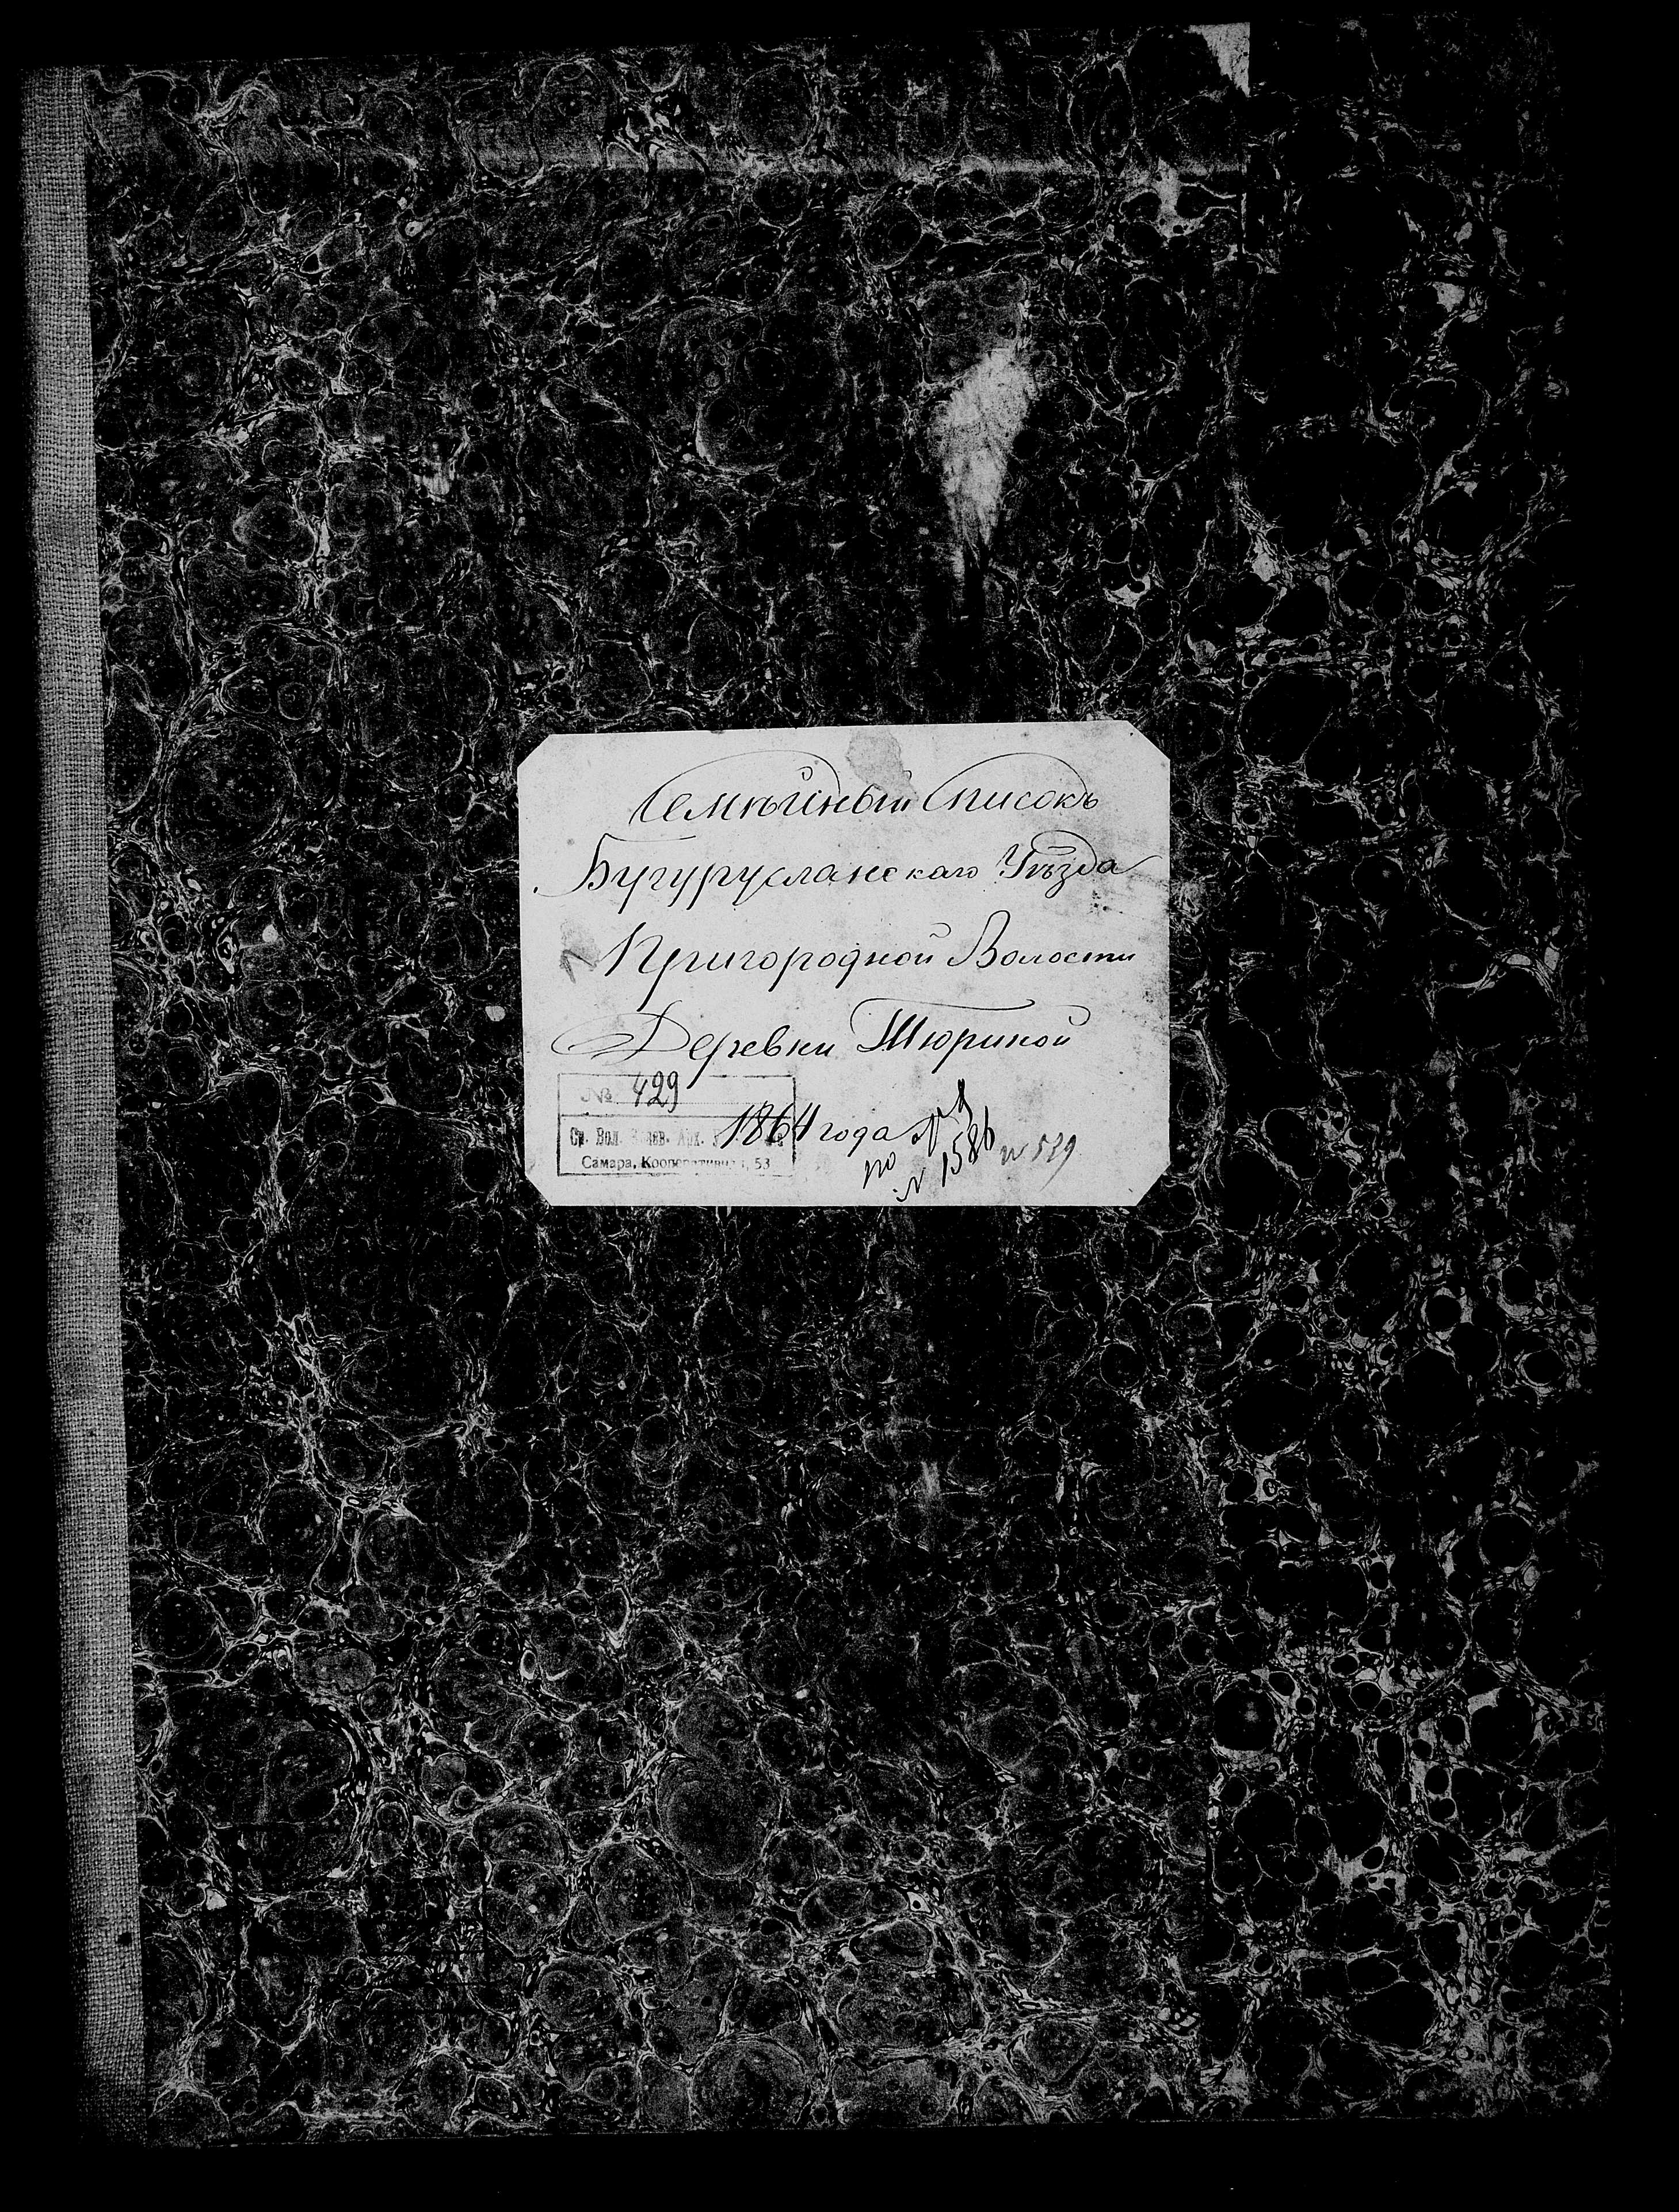 Семѣйный Списокъ
Бугурусланскаго Уѣзда
Пригородной Волости
Деревни Тюриной
№ 429
1864 года
Ср. Вол.
Самара, Кооперативная, 53
по № 9
№ 1586